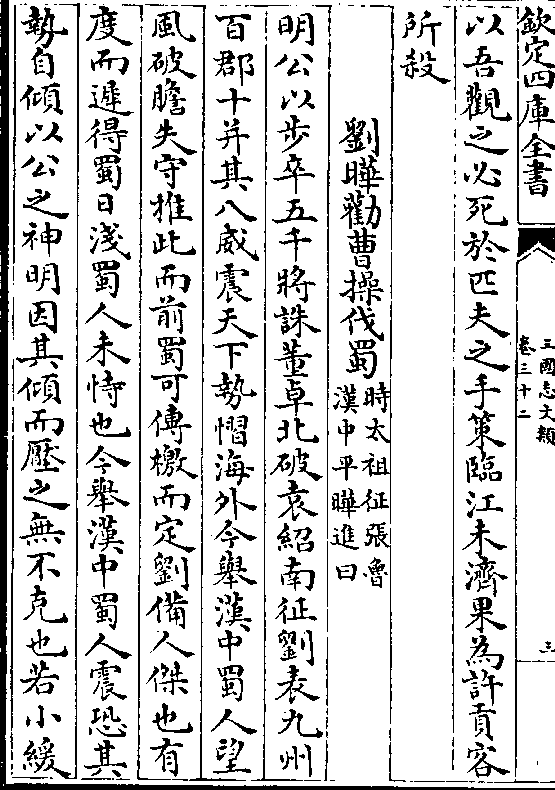 欽定四庫全書
三國志文類
卷三十二
三
以吾觀之必死於匹夫之手策臨江未濟果為許貢客
所殺
劉曄勸曹操伐蜀
時太祖征張魯
漢中平曄進曰
明公以步卒五千將誅董卓北破袁紹南征劉表九州
百郡十并其八威震天下勢慴海外今舉漢中蜀人望
風破膽失守推此而前蜀可傳檄而定劉備人傑也有
度而遲得蜀日淺蜀人未恃也今舉漢中蜀人震恐其
勢自傾以公之神明因其傾而壓之無不克也若小緩